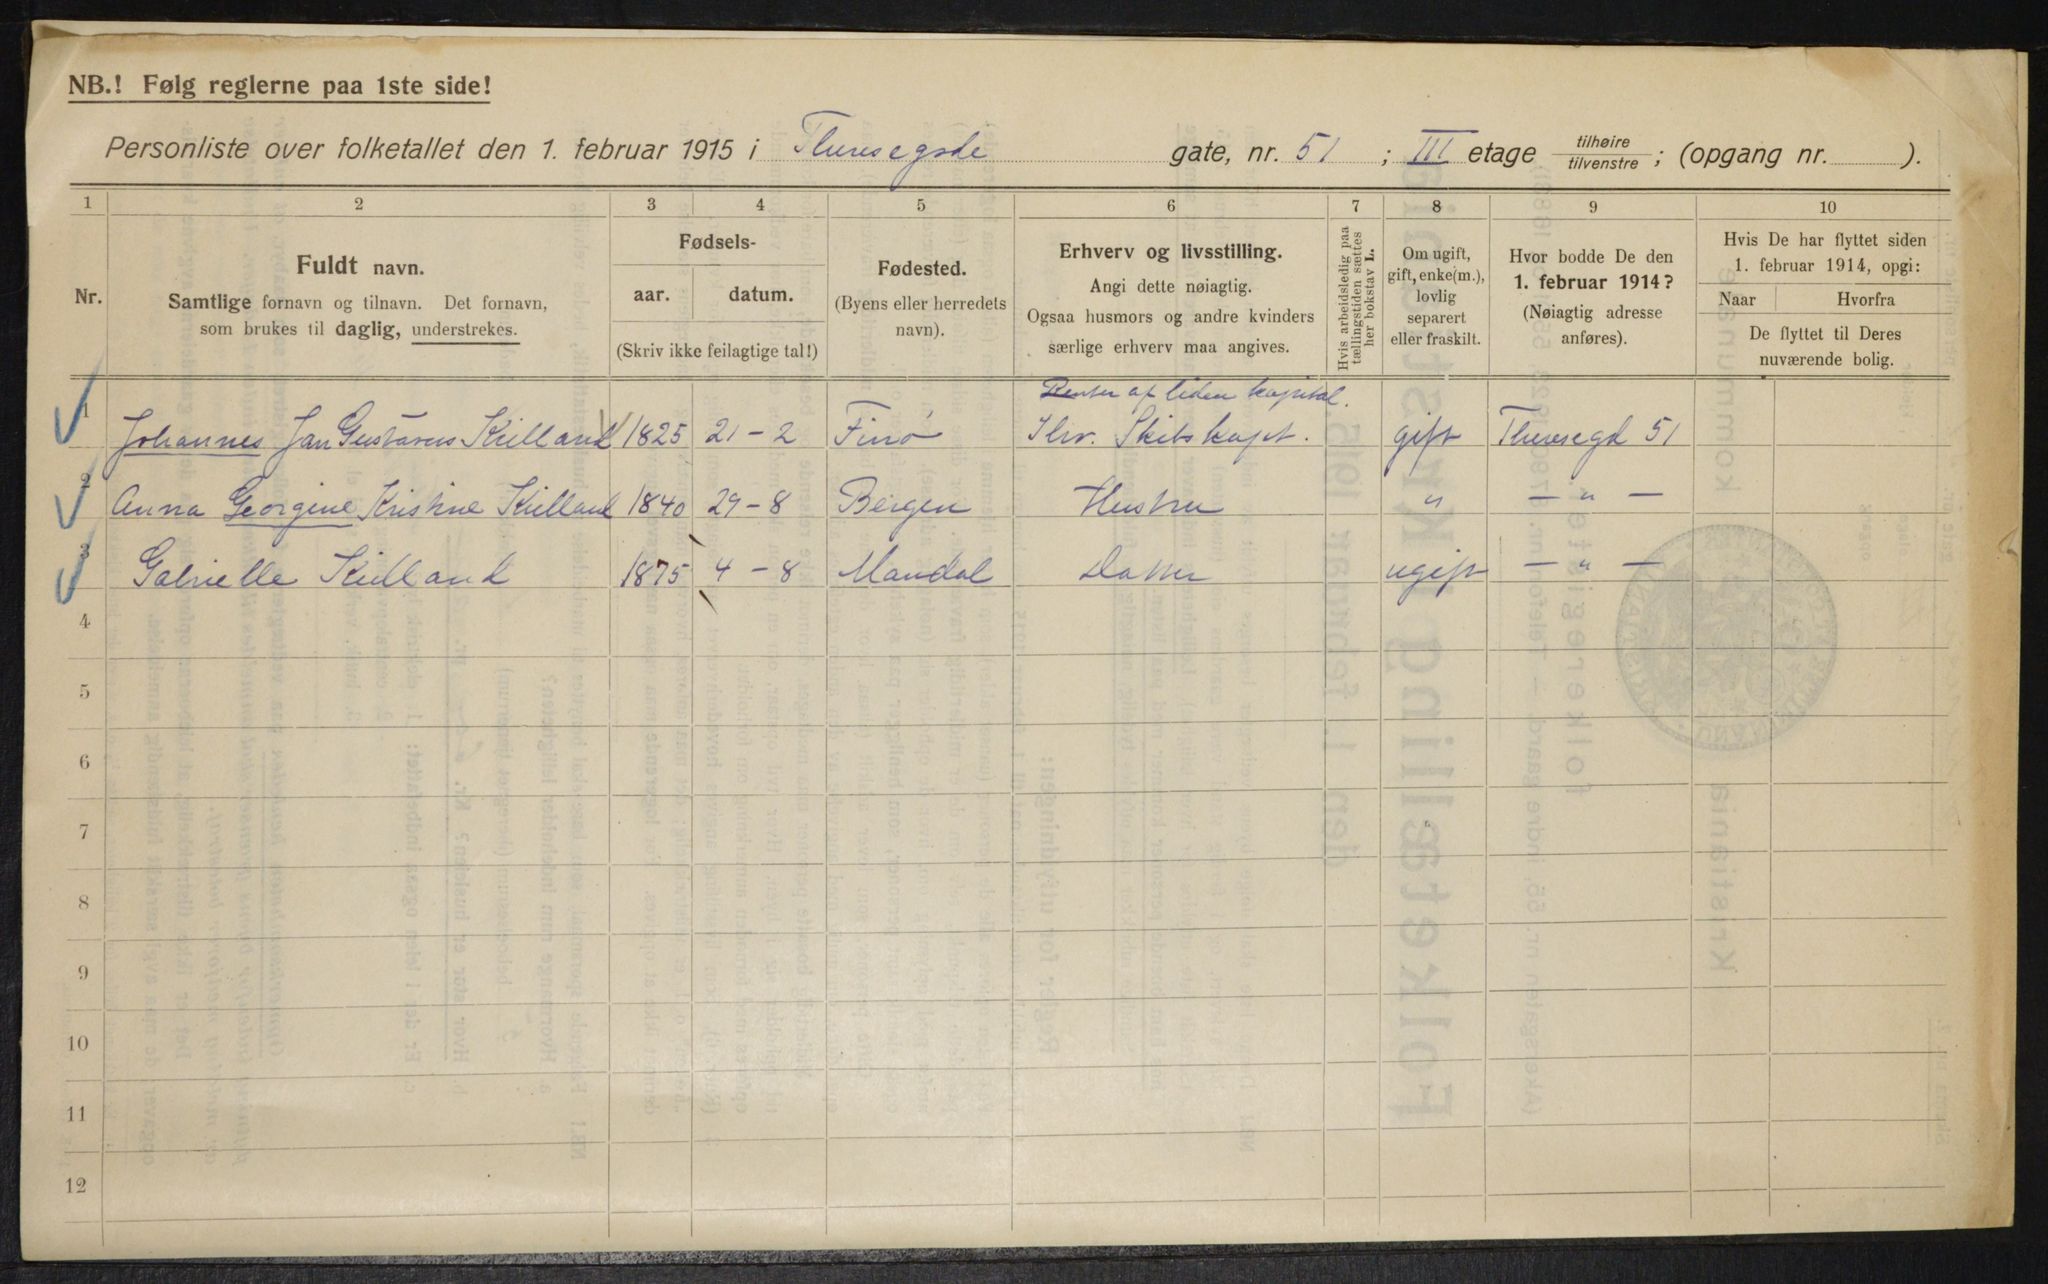 NB.! Følg reglerne paa 1ste side!
Personliste over folketallet den 1. februar 1915 i Theresegade gate, nr. 51 ; III etage tilhøire / tilvenstre ; (opgang nr. ).
1 2 3 4 5 6 7 8 9 10
Nr.
Fuldt navn.
Samtlige fornavn og tilnavn. Det fornavn,
som brukes til daglig, understrekes.
Fødsels-
aar. datum.
(Skriv ikke feilagtige tal!)
Fødested.
(Byens eller herredets
navn).
Erhverv og livsstilling.
Angi dette nøiagtig.
Ogsaa husmors og andre kvinders
særlige erhverv maa angives.
Hvis arbeidsledig paa
tællingstiden sættes
her bokstav L.
Om ugift,
gift, enke(m.),
lovlig
separert
eller fraskilt.
Hvor bodde De den
1. februar 1914?
(Nøiagtig adresse
anføres).
Hvis De har flyttet siden
1. februar 1914, opgi:
Naar Hvorfra
De flyttet til Deres
nuværende bolig.
Renter af liden kapital.
1 Johannes Jan Gustavus Kielland 1825 21-2 Finø Fhv. Skibskapt. gift Theresegd 51
2 Anna Georgine Kristine Kielland 1840 29-8 Bergen Hustru " — " —
3 Gabrielle Kielland 1875 4-8 Mandal Datter ugift — " —
4
5
6
7
8
9
10
11
12